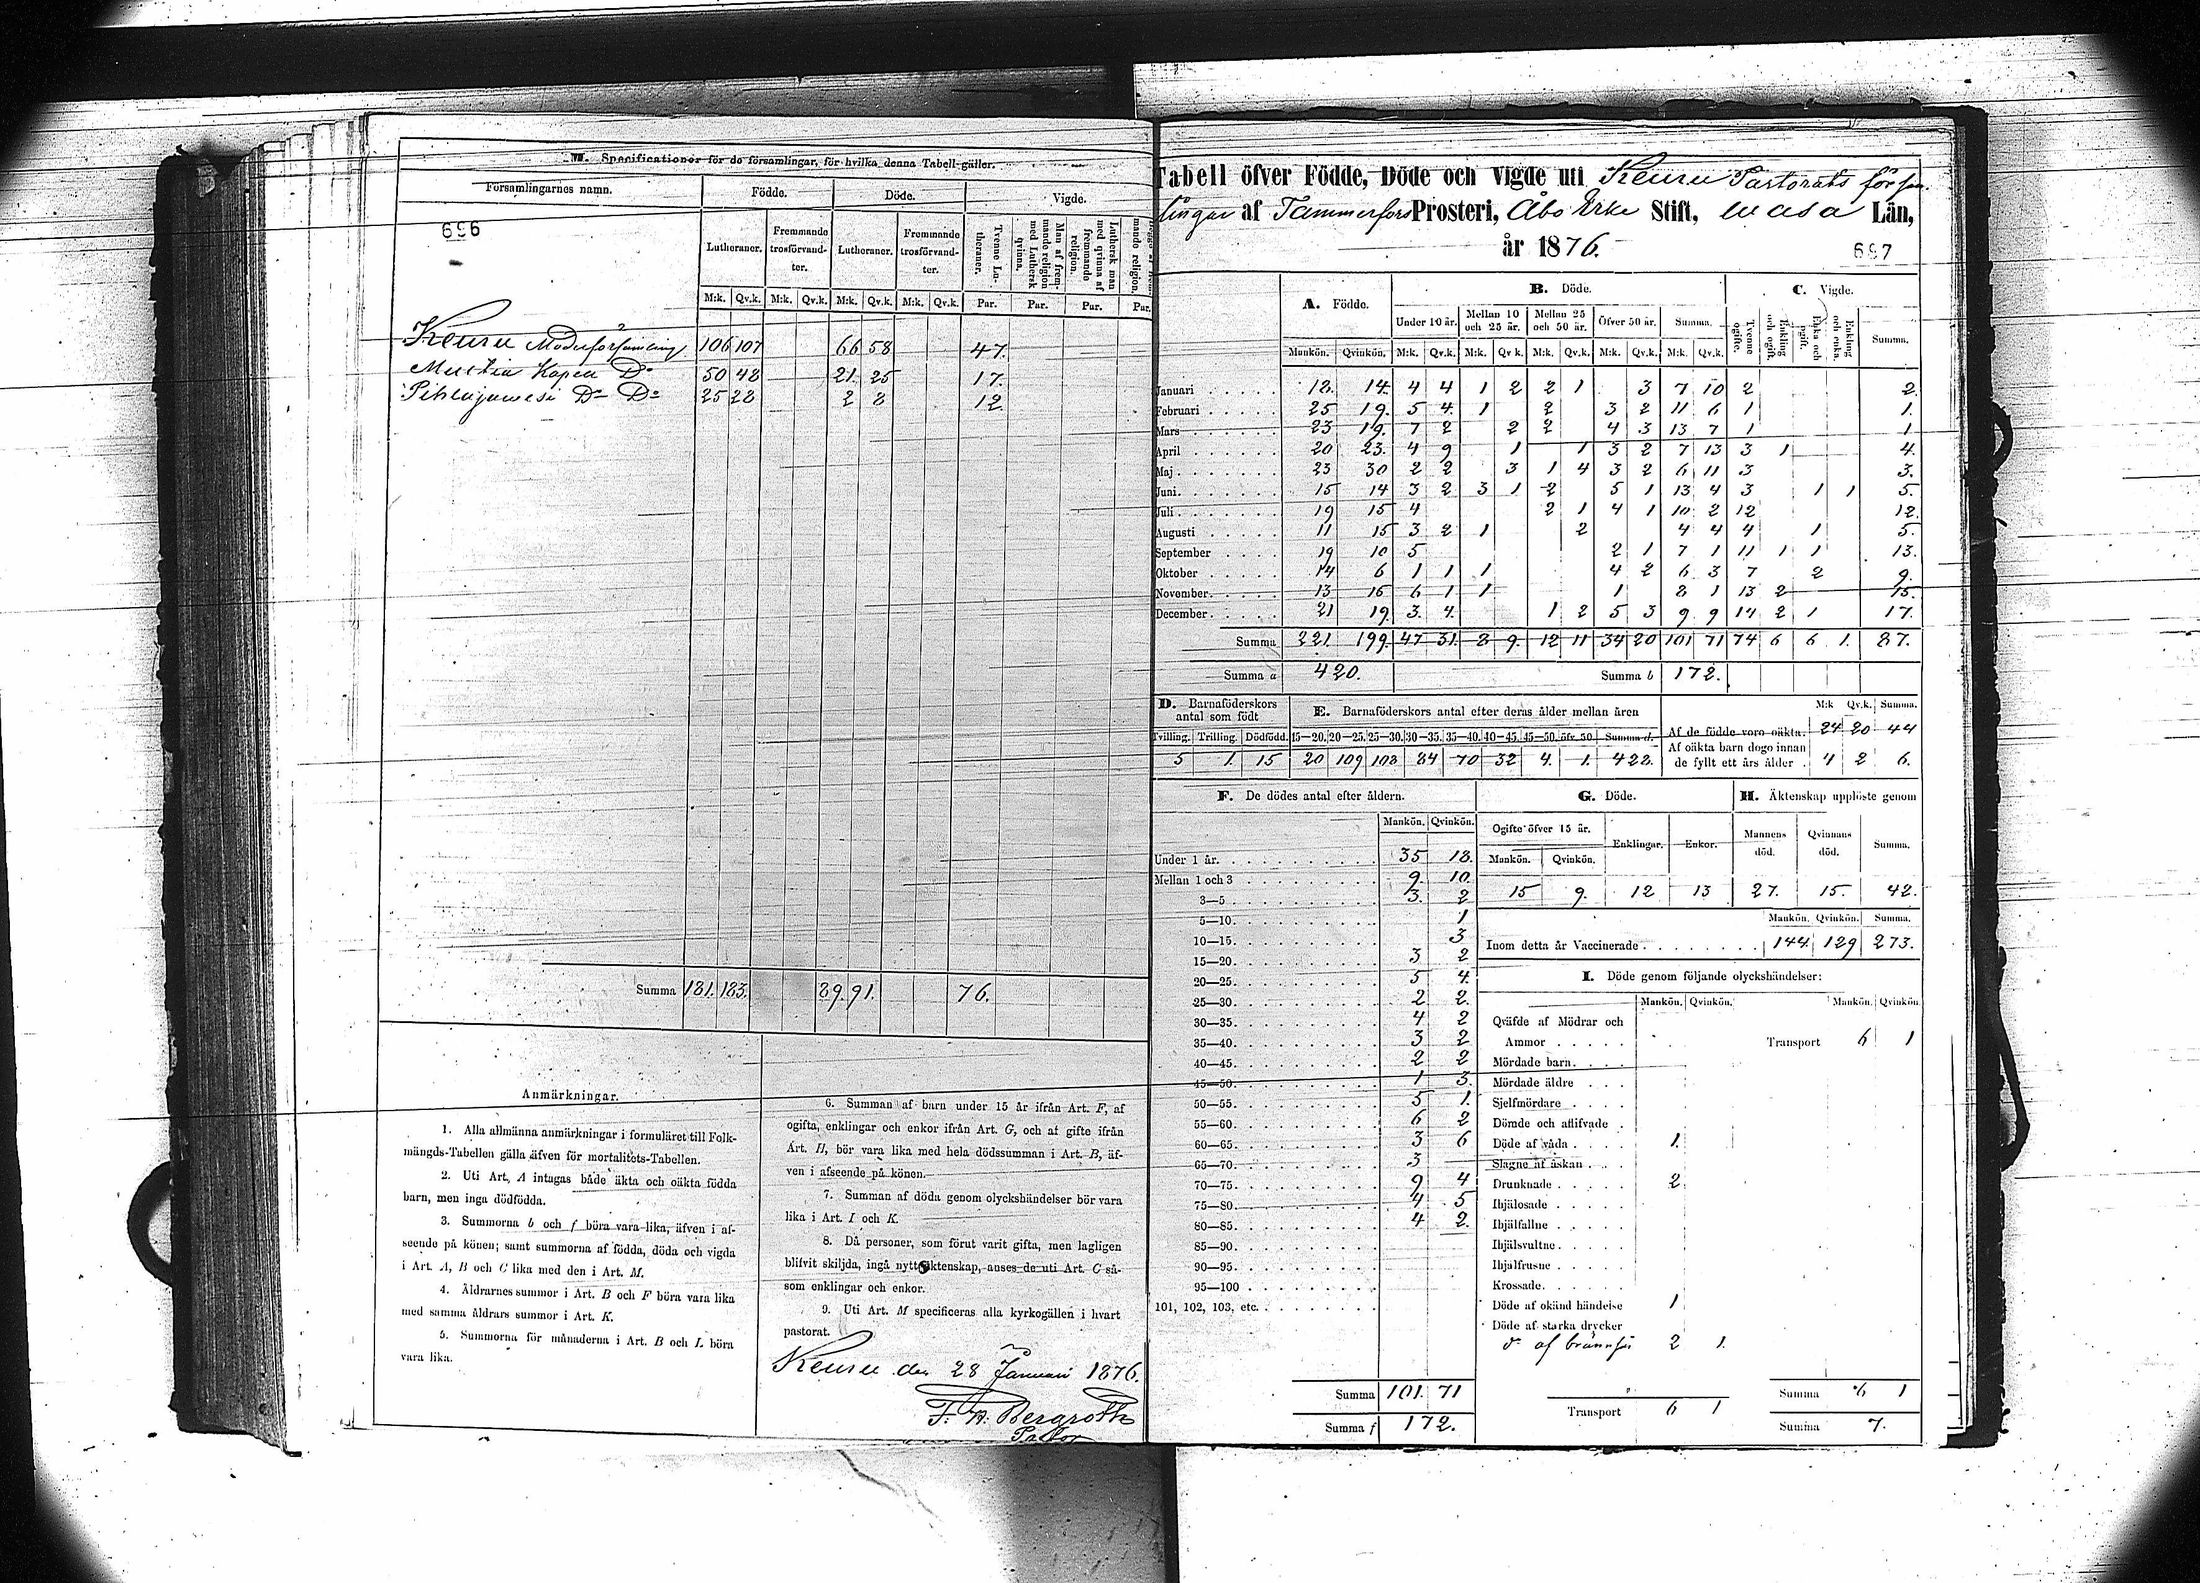 M. Specificationer för de församlingar, för hvilka denna Tabell gäller.
Församlingarnes namn. Födde. Döde. Vigde.
696
Lutheraner. Fremmande trosförvandter. Lutheraner. Fremmande trosförvandter. Tvenne Lutheraner. Man af fremmande religion med Luthersk qvinna. Luthersk man med qvinna af fremmande religion.
M:k. Qv.k. M:k. Qv.k. M:k. Qv.k. M:k. Qv.k. Par. Par. Par. Par.
Keuru Moderförsamling 106 107 66 58 47.
Multia Kapell Do 50 48 21. 25 17.
Pihlajavesi Do Do 25 28 2 8 12
Summa 181. 183. 89. 91. 76.
Anmärkningar.
1. Alla allmänna anmärkningar i formuläret till Folk-
mängds-Tabellen gälla äfven för mortalitets-Tabellen.
2. Uti Art. A intagas både äkta och oäkta födda
barn, men inga dödfödda.
3. Summorna b och f böra vara lika, äfven i af-
seende på könen; samt summorna af födda, döda och vigda
i Art. A, B och C lika med den i Art. M.
4. Åldrarnes summor i Art. B och F böra vara lika
med samma åldrars summor i Art. K.
5. Summorna för månaderna i Art. B och L böra
vara lika.
6. Summan af barn under 15 år ifrån Art. F, af
ogifta, enklingar och enkor ifrån Art. G, och af gifte ifrån
Art. H, bör vara lika med hela dödssumman i Art. B, äf-
ven i afseende på könen.
7. Summan af döda genom olyckshändelser bör vara
lika i Art. I och K.
8. Då personer, som förut varit gifta, men lagligen
blifvit skiljda, ingå nytt äktenskap, anses de uti Art. C så-
som enklingar och enkor.
9. Uti Art. M specificeras alla kyrkogällen i hvart
pastorat.
Keuru den 28 Januari 1876.
F. W. Bergroth
Pastor
Tabell öfver Födde, Döde och Vigde uti Keuru Pastorats försam-
lingar af Tammerfors Prosteri, Åbo Erke Stift, Wasa Län,
år 1876.
697
A. Födde. B. Döde. C. Vigde.
Under 10 år. Mellan 10 och 25 år. Mellan 25 och 50 år. Öfver 50 år. Summa. Tvenne ogifte. Enkling och ogift. Enka och ogift. Enkling och enka. Summa.
Mankön. Qvinkön. M:k. Qv.k. M:k. Qv.k. M:k. Qv.k. M:k. Qv.k. M:k. Qv.k.
Januari 18. 14. 4 4 1 2 2 1 3 7 10 2 2.
Februari 25 19. 5 4. 1 2 3 2 11 6 1 1.
Mars 23 19. 7 2 2 2 4 3 13 7 1 1.
April 20 23. 4 9 1 1 3 2 7 13 3 1 4.
Maj 23 30 2 2 3 1 4 3 2 6 11 3 3.
Juni 15 14 3 2 3 1 2 5 1 13 4 3 1 1 5.
Juli 19 15 4 2 1 4 1 10 2 12 12.
Augusti 11 15 3 2 1 2 4 4 4 1 5.
September 19 10 5 2 1 7 1 11 1 1 13.
Oktober 14 6 1 1 1 4 2 6 3 7 2 9.
November 13 15 6 1 1 1 8 1 13 2 15.
December 21 19. 3. 4. 1 2 5 3 9 9 14 2 1 17.
Summa 221. 199. 47 31. 8 9. 12 11 34 20 101 71 74 6 6 1. 87.
Summa a 420. Summa b 172.
D. Barnaföderskors antal som födt
Tvilling. Trilling. Dödfödd.
5 1. 15
E. Barnaföderskors antal efter deras ålder mellan åren
15—20. 20—25. 25—30. 30—35. 35—40. 40—45. 45—50. öfv. 50. Summa d.
20 109 102 84 70 32 4. 1. 422.
M:k Qv.k. Summa.
Af de födde voro oäkta. 24 20 44
Af oäkta barn dogo innan
de fyllt ett års ålder 4 2 6.
F. De dödes antal efter åldern.
Mankön. Qvinkön.
Under 1 år. 35 18.
Mellan 1 och 3 9. 10.
3—5 3. 2
5—10. 1
10—15. 3
15—20. 3 2
20—25. 5 4.
25—30. 2 2.
30—35. 4 2
35—40. 3 2
40—45. 2 2
45—50. 1 3.
50—55. 5 1.
55—60. 6 2
60—65. 3 6
65—70. 3
70—75. 9 4
75—80. 4 5
80—85. 4 2.
85—90.
90—95.
95—100
101, 102, 103, etc.
Summa 101. 71
Summa f 172.
G. Döde.
Ogifte öfver 15 år. Enklingar. Enkor.
Mankön. Qvinkön.
15 9. 12 13
H. Äktenskap upplöste genom
Mannens död. Qvinnans död. Summa.
27. 15. 42.
Mankön. Qvinkön. Summa.
Inom detta år Vaccinerade 144 129 273.
I. Döde genom följande olyckshändelser:
Mankön. Qvinkön. Mankön. Qvinkön.
Qväfde af Mödrar och
Ammor
Transport 6 1
Mördade barn.
Mördade äldre
Sjelfmördare
Dömde och aflifvade
Döde af våda 1.
Slagne af åskan
Drunknade 2.
Ihjälosade
Ihjälfallne
Ihjälsvultne
Ihjälfrusne
Krossade.
Döde af okänd händelse 1
Döde af starka drycker
af 2 1.
Transport 6 1
Summa 6 1
Summa 7.